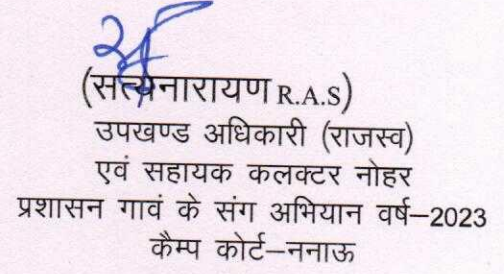 (सत्यनारायण R.A.S)
उपखण्ड अधिकारी (राजस्व)
एवं सहायक कलक्टर नोहर
प्रशासन गावं के संग अभियान वर्ष–2023
कैम्प कोर्ट–ननाऊ